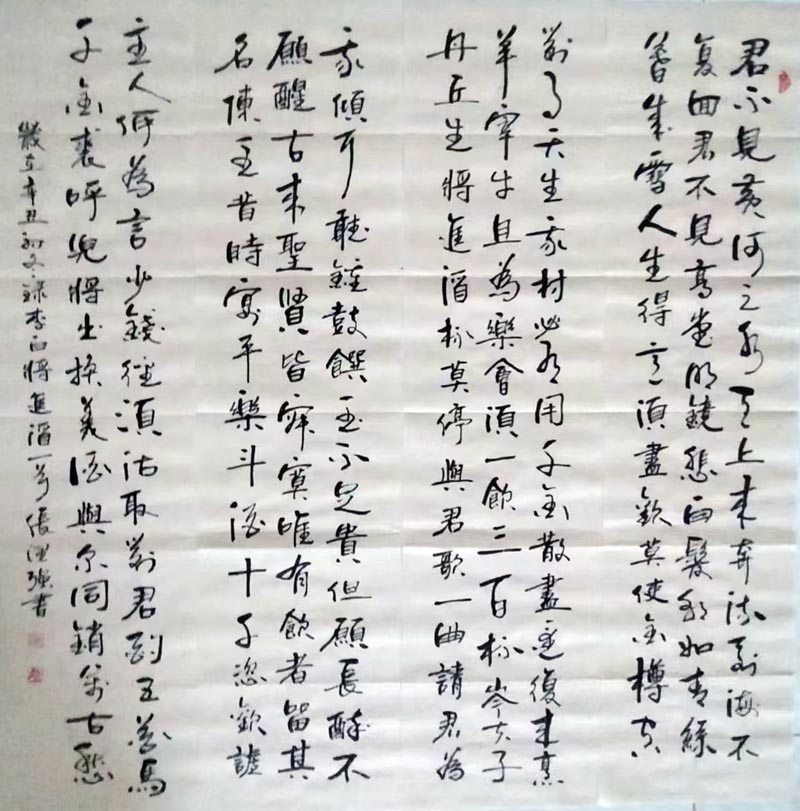 君不見黃河之水天上來奔流到海不
复回君不見高堂明鏡悲白髮朝如青絲
暮成雪人生得意須盡歡莫使金樽空
對月天生我材必有用千金散盡還復來烹
羊宰牛且為樂會須一飲三百杯岑夫子
丹丘生將進酒杯莫停與君歌一曲請君為
我傾耳聽鐘鼓饌玉不足貴但願長醉不
願醒古來聖賢皆寂寞唯有飲者留其
名陳王昔時宴平樂斗酒十千恣歡謔
主人何為言少錢徑須沽取對君酌五花馬
千金裘呼兒將出換美酒與爾同銷萬古愁
歲在辛丑初冬錄李白將進酒一首張強書